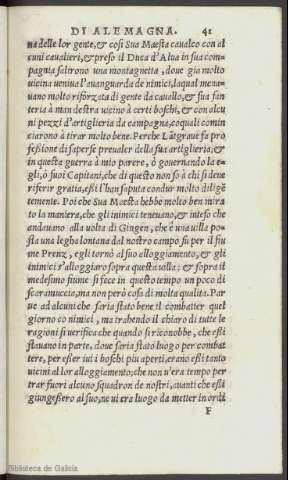 DI ALEMAGNA. 41
na delle lor gente, & così Sua Maesta caualco con al
cuni caualieri, & preso il Duca d'Alua in sua com-
pagnia salirono una montagnetta, doue gia molto
uicina ueniua l'auanguarda de nimici, laqual mena-
uano molto riforzata di gente da cauallo, & sua fan
teria à man destra uicino à certi boschi, & con alcu
ni pezzi d'artiglieria da campagna, coquali comin
ciarono à tirar molto bene. Perche Lātgraue fa pro
feßione di saperse preualer della sua artiglieria, &
in questa guerra à mio parere, ò gouernando la e-
gli, ò suoi Capitani, che di questo non so à chi si deue
riferir gratia, eßi l'han saputa condur molto diligē
temente. Poi che Sua Maesta hebbe molto ben mira
to la maniera, che gli inimici teneuano, & inteso che
andauano alla uolta di Gingen, che è una uilla po-
sta una legha lontana dal nostro campo su per il fiu
me Prenz, egli tornò al suo alloggiamento, & gli
inimici s'alloggiaro sopra questa uilla; & sopra il
medesimo fiume si fece in questo tempo un poco di
scaramucca, ma non però cosa di molta qualita. Par
ue ad alcuni che saria stato bene il combatter quel
giorno co nimici, ma trahendo il chiaro di tutte le
ragioni si uerifica che quando si riconobbe, che eßi
stauano in parte, doue saria stato luogo per combat
tere, per eßer iui i boschi piu aperti, erano eßi tanto
uicini al lor alloggiamento; che non u'era tempo per
trar fuori alcuno squadron de nostri, auanti che eßi
giungeßero al suo, ne ui era luogo da metter in ordi
F
Biblioteca de Galicia